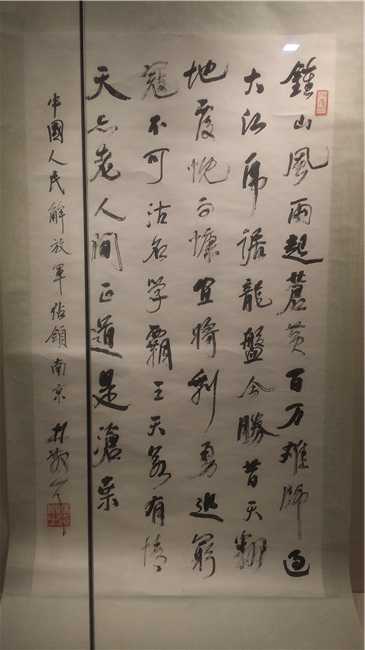 鍾山風雨起蒼黄百万雄師過
大江虎踞龍盤今勝昔天翻
地覆慨而慷宜將剩勇追窮
寇不可沽名学霸王天若有情
天亦老人間正道是滄桑
中國人民解放軍佔領南京